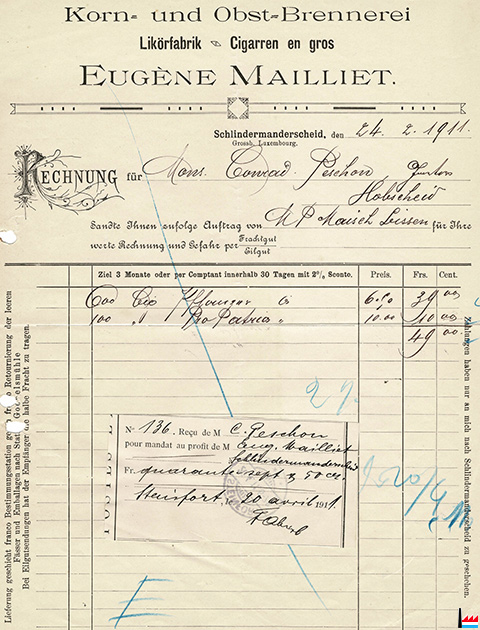 Korn- und Obst-Brennerei
Likörfabrik Cigarren en gros
EUGÈNE MAILLIET.
Schlindermanderscheid, den 24. 2. 1911.
Grossh. Luxembourg.
RECHNUNG für Mons. Conrad Peschon
Hobscheid
Sandte Ihnen zufolge Auftrag von MP Maisch für Ihre
werte Rechnung und Gefahr per Frachtgut
Eilgut
Ziel 3 Monate oder per Comptant innerhalb 30 Tagen mit 2% Sconto. Preis. Frs. Cent.
600 Cig à 6.50 39 00
100 " Pro Patria " 10.00 10 00
49 00
No 136. Reçu de M C. Peschon
pour mandat au profit de M Eug. Mailliet
Schlindermanderscheid
Fr. quarante sept & 50 ct.
Steinfort, le 20 avril 1911
POSTES
Lieferung geschieht franco Bestimmungsstation gegen franco Retournierung der leeren
Fässer und Emballagen nach Station
Bei Eilgutsendungen hat der Empfänger die halbe Fracht zu tragen.
Zahlungen haben nur an mich nach Schlindermanderscheid zu geschehen.